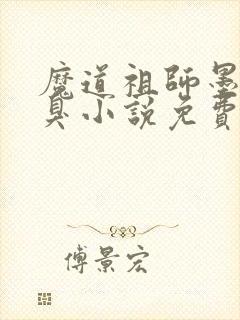 魔道祖師墨
臭小說免費
傅景宏